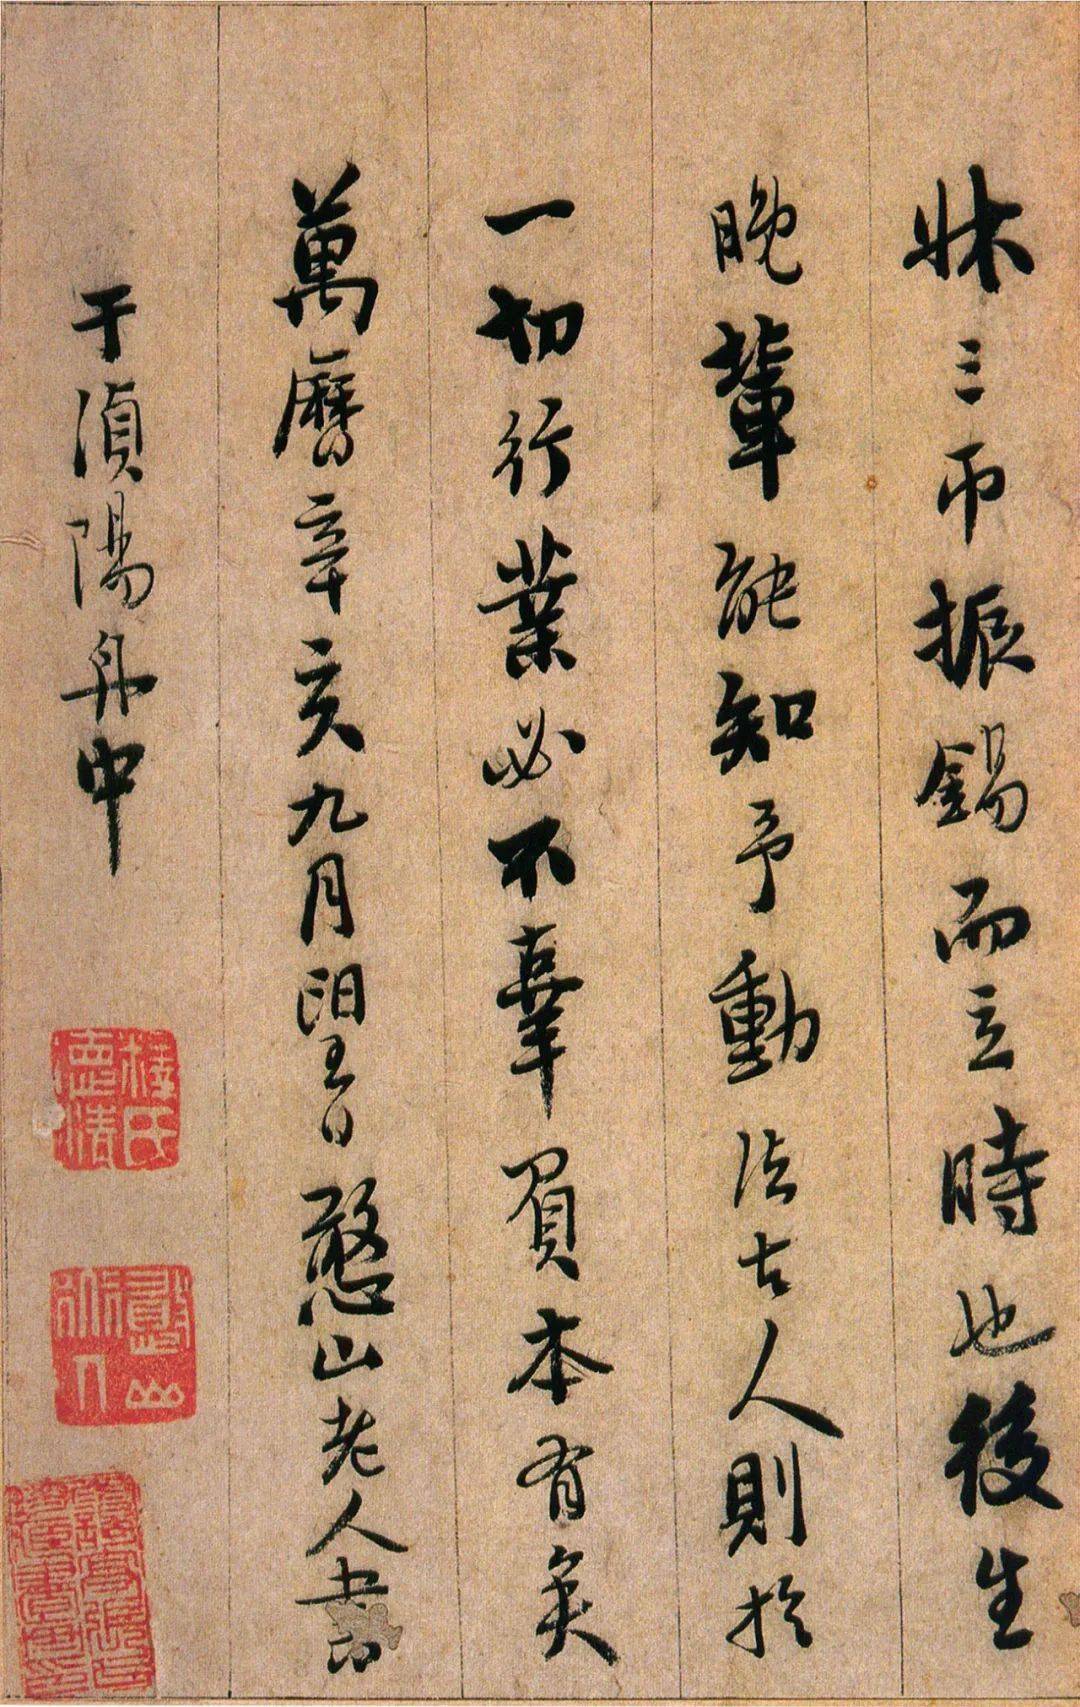 牀三帀振錫而立時也後生
晚輩能知予動法古人則於
一切行業必不辜負本有矣
萬曆辛亥九月望日憨山老人書
于湞陽舟中